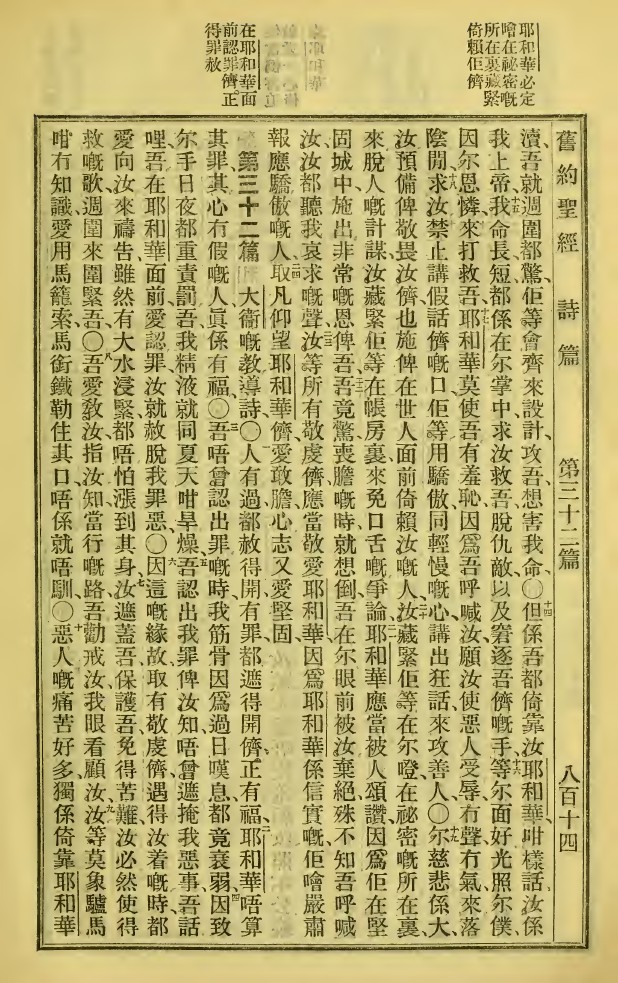 耶和華必定
噲在祕密嘅
所在裏藏緊
倚賴佢儕
在耶和華面
前認罪儕正
得罪赦
舊約聖經　詩篇　第三十二篇　八百十四
瀆、吾就週圍都驚、佢等會齊來設計攻吾、想害我命、〇十四但係吾都倚靠汝耶和華、咁樣話、汝係
我上帝、十五我命長短、都係在尔掌中、求汝救吾脫仇敵、以及窘逐吾儕嘅手、十六等尔面好光照尔僕、
因尔恩憐來打救吾、十七耶和華、莫使吾有羞恥、因爲吾呼喊汝、願汝使惡人受辱、冇聲冇氣來落
陰間、十八求汝禁止講假話儕嘅口、佢等用驕傲同輕慢嘅心、講出狂話來攻善人、〇十九尔慈悲係大、
汝預備俾敬畏汝儕、也施俾在世人面前倚賴汝嘅人、二十汝藏緊佢等在尔噔在祕密嘅所在裏、
來脫人嘅計謀、汝藏緊佢等在帳房裏、來免口舌嘅爭論、二一耶和華應當被人頌讚、因爲佢在堅
固城中、施出非常嘅恩俾吾、二二吾竟驚喪膽嘅時、就想倒、吾在尔眼前被汝棄絕、殊不知吾呼喊
汝、汝都聽我哀求嘅聲、二三汝等所有敬虔儕、應當敬愛耶和華、因爲耶和華係信實嘅、佢噲嚴肅
報應驕傲嘅人、二四取凡仰望耶和華儕、愛敢膽、心志又愛堅固、
第三十二篇　大衞嘅教導詩、〇一人有過都赦得開、有罪都遮得開儕、正有福、二耶和華唔算
其罪、其心冇假嘅人、眞係有福、〇三吾唔曾認出罪嘅時、我筋骨因爲過日嘆息、都竟衰弱、四因致
尔手日夜都重責罰吾、我精液就同夏天咁旱燥、五吾認出我罪俾汝知、唔曾遮掩我惡事、吾話
哩、吾在耶和華面前愛認罪、汝就赦脫我罪惡、〇六因這嘅緣故、取有敬虔儕、遇得汝着嘅時、都
愛向汝來禱告、雖然有大水浸緊、都唔怕漲到其身、七汝遮蓋吾、保護吾免得苦難、汝必然使得
救嘅歌、週圍來圍緊吾、〇八吾愛教汝、指汝知當行嘅路、吾勸戒汝、我眼看顧汝、九汝等莫象驢馬
咁冇知識、愛用馬籠索、馬銜鐵、勒住其口、唔係就唔馴、〇十惡人嘅痛苦好多、獨係倚靠耶和華